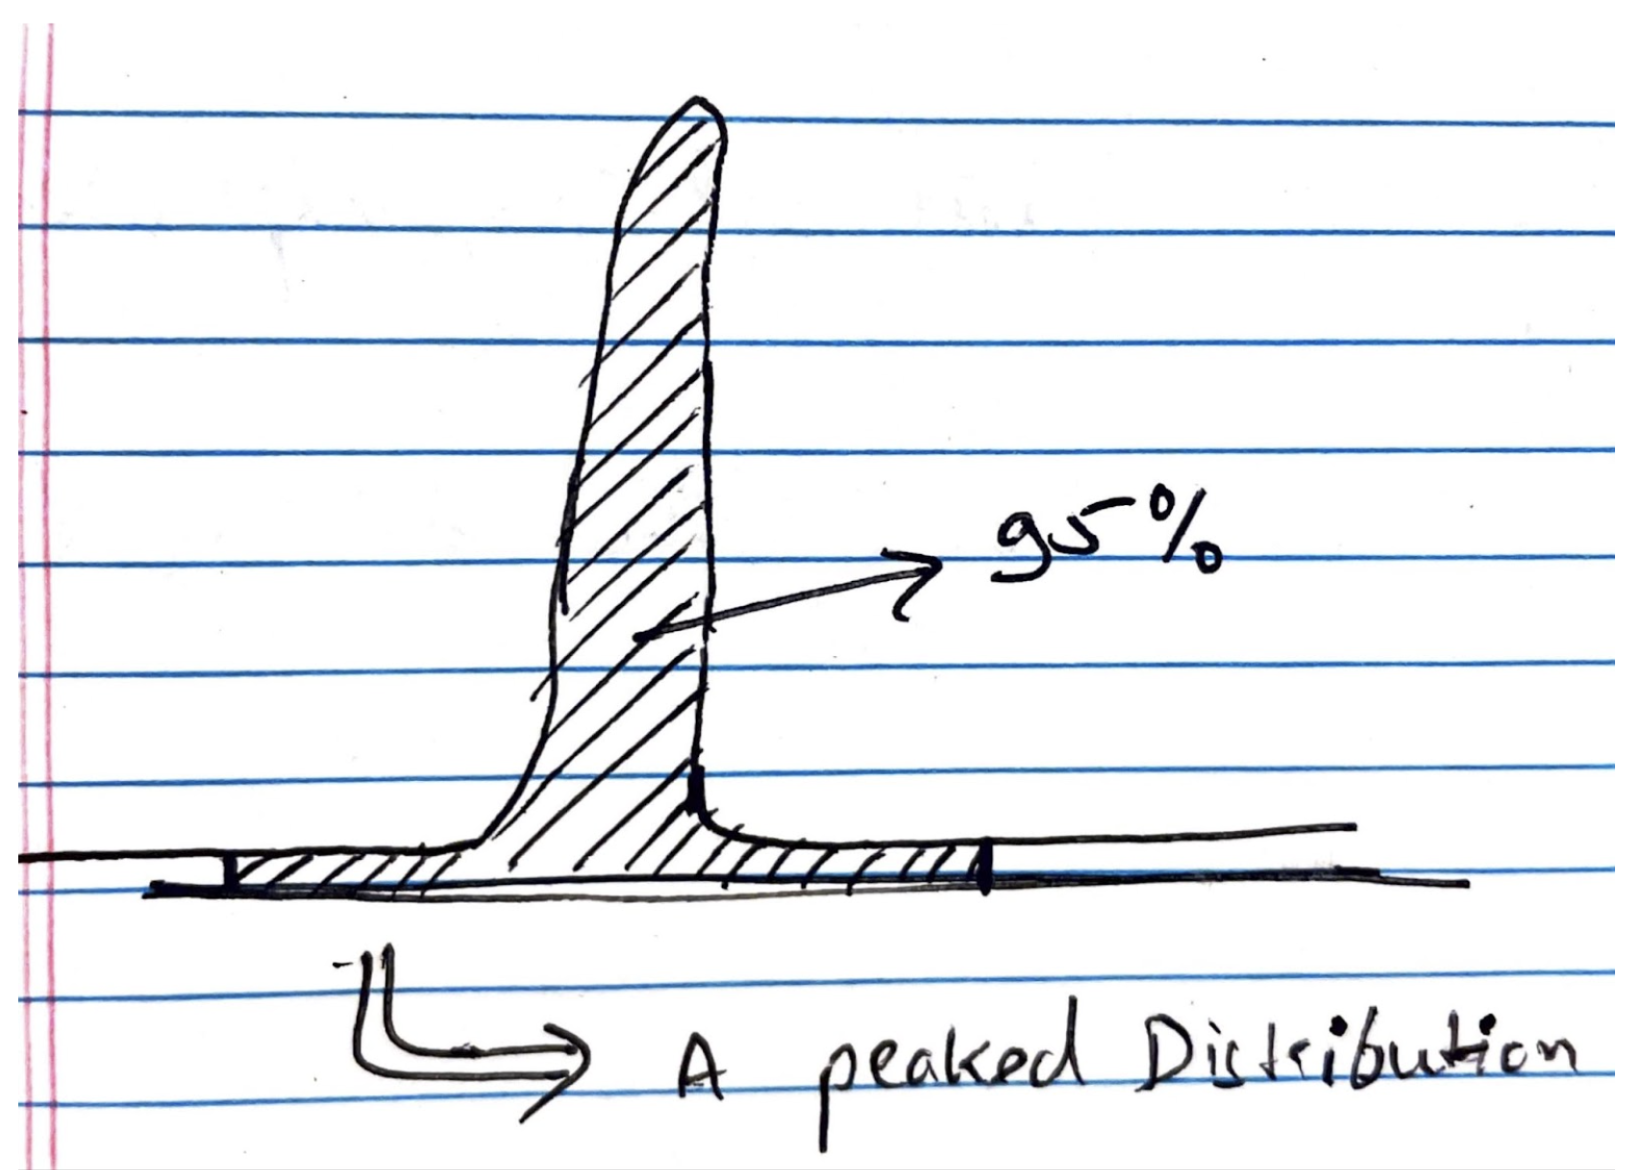 95%
A peaked Distribution